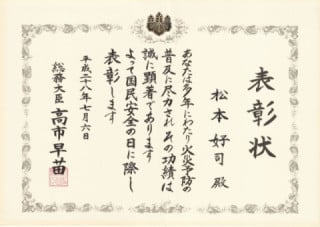 表彰状
松本好司 殿
あなたは多年にわたり火災予防の
普及に尽力されその功績は
誠に顕著であります
よって国民安全の日に際し
表彰します
平成二十八年七月六日
総務大臣 高市早苗